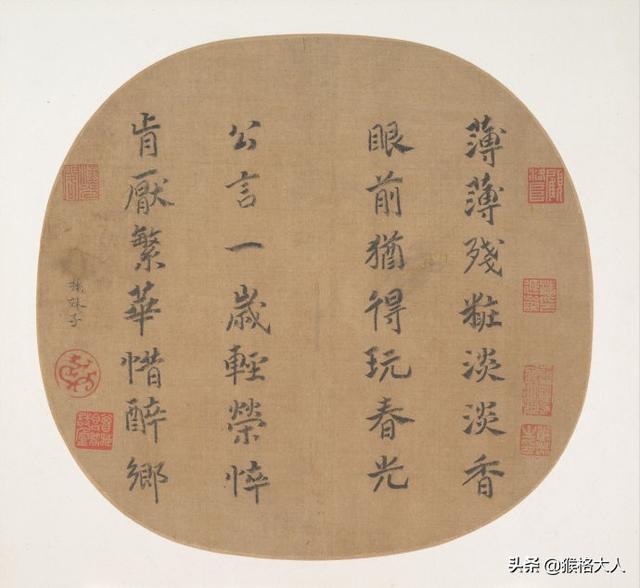 薄薄殘粧淡淡香
眼前猶得玩春光
公言一歲輕榮悴
肯厭繁華惜醉鄉
楊妹子
头条 @猴格大人